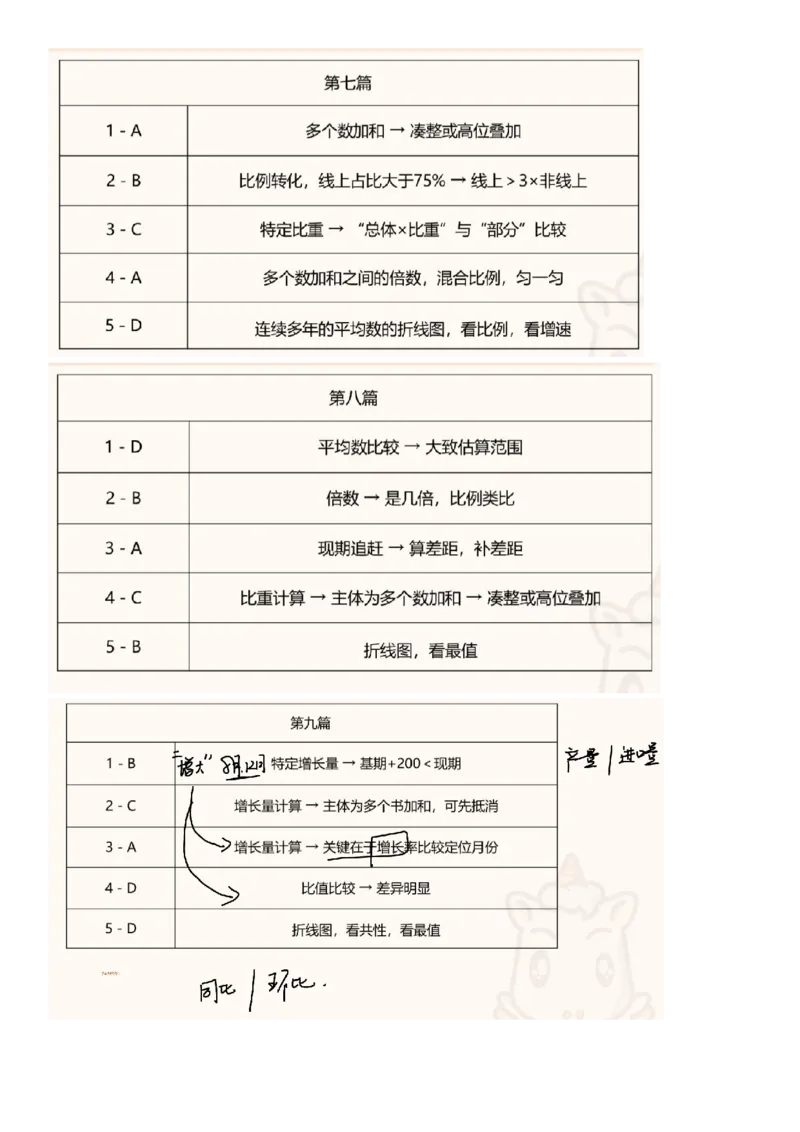 第七篇
1 - A 多个数加和 → 凑整或高位叠加
2 - B 比例转化，线上占比大于75% → 线上＞3×非线上
3 - C 特定比重 → “总体×比重”与“部分”比较
4 - A 多个数加和之间的倍数，混合比例，匀一匀
5 - D 连续多年的平均数的折线图，看比例，看增速
第八篇
1 - D 平均数比较 → 大致估算范围
2 - B 倍数 → 是几倍，比例类比
3 - A 现期追赶 → 算差距，补差距
4 - C 比重计算 → 主体为多个数加和 → 凑整或高位叠加
5 - B 折线图，看最值
第九篇
1 - B “增大” 8月,12月 特定增长量 → 基期+200＜现期 产量 | 进口量
2 - C 增长量计算 → 主体为多个书加和，可先抵消
3 - A 增长量计算 → 关键在于增长率比较定位月份
4 - D 比值比较 → 差异明显
5 - D 折线图，看共性，看最值
同比 | 环比.